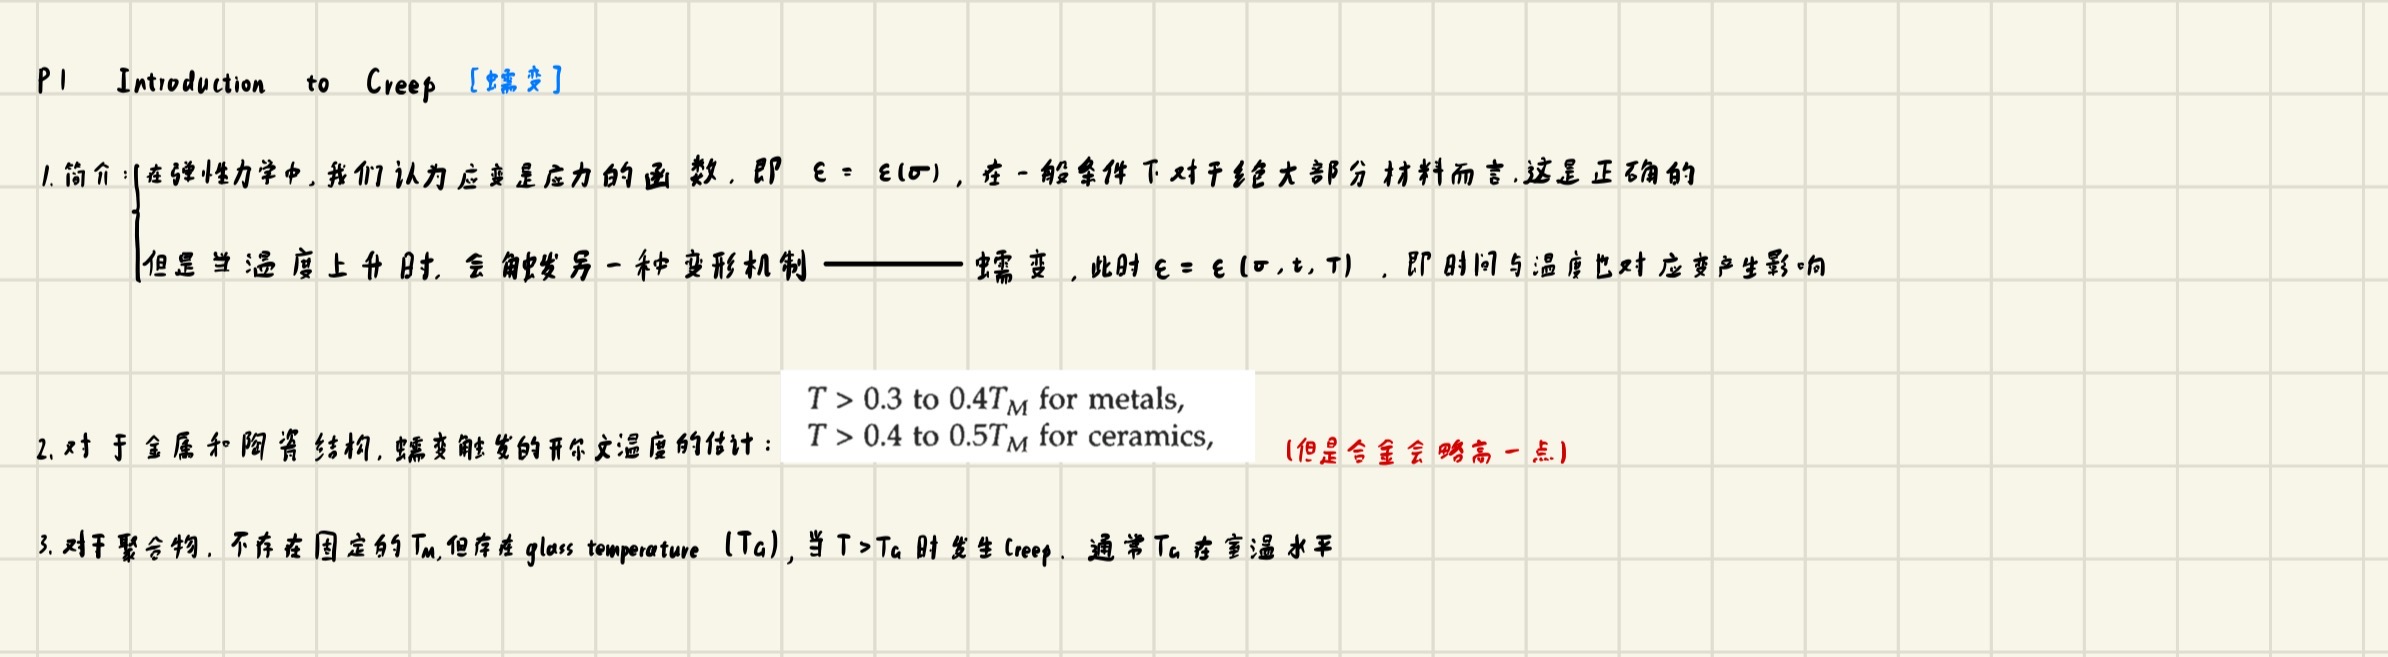 P1 Introduction to Creep [蠕变]
1. 简介: 在弹性力学中, 我们认为应变是应力的函数. 即 ε = ε(σ), 在一般条件下对于绝大部分材料而言. 这是正确的
但是当温度上升时, 会触发另一种变形机制——蠕变, 此时 ε = ε (σ, t, T) . 即时间与温度也对应变产生影响
T > 0.3 to 0.4T_M for metals,
T > 0.4 to 0.5T_M for ceramics,
2. 对于金属和陶瓷结构, 蠕变触发的开尔文温度的估计: (但是合金会略高一点)
3. 对于聚合物. 不存在固定的 T_M, 但存在 glass temperature (T_G), 当 T > T_G 时发生 Creep. 通常 T_G 在室温水平